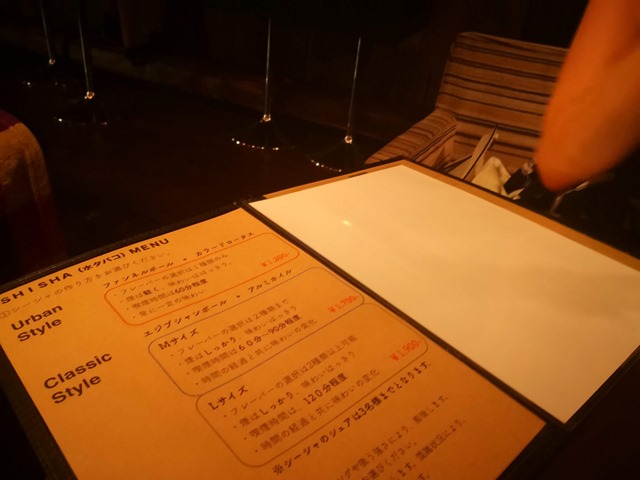 SHISHA (水タバコ) MENU
①シーシャの作り方をお選びください。
Urban Style
ファンネルボール + カラードロータス
・フレーバーの選択は1種類のみ
・煙は軽く、味わいははっきり。
・喫煙時間は60分程度
・常に一定の味わい
¥1,200-
Classic Style
エジプシャンボール + アルミホイル
Mサイズ
・フレーバーの選択は2種類まで
・煙はしっかり、味わいはっきり
・喫煙時間は60分〜90分程度
・時間の経過と共に味わいの変化
¥1,700-
Lサイズ
・フレーバーの選択は2種類以上可能
・煙はしっかり、味わいはっきり
・喫煙時間は、120分程度
・時間の経過と共に味わいの変化
¥1,900-
※シーシャのシェアは3名様までとなります。